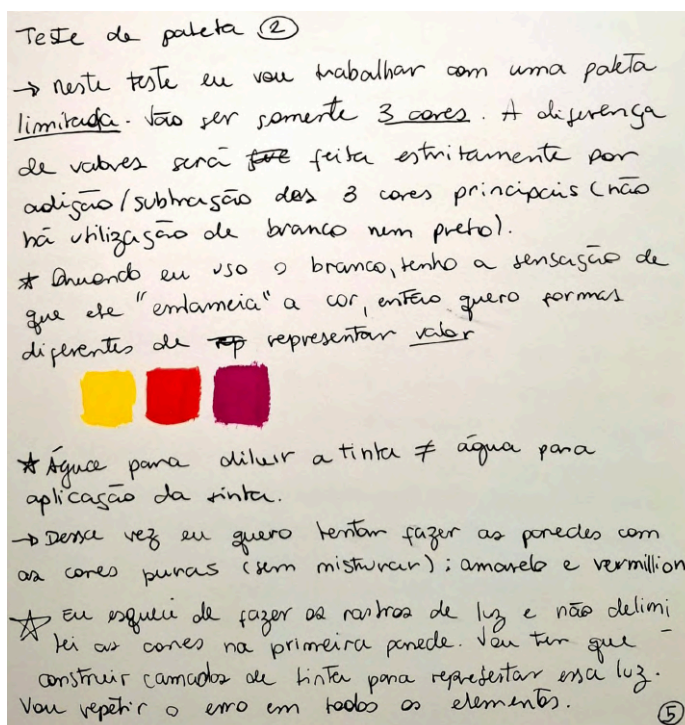 Teste de paleta ②
→ neste teste eu vou trabalhar com uma paleta
limitada. Vão ser somente 3 cores. A diferença
de valores será feita estritamente por
adição/subtração das 3 cores principais (não
há utilização de branco nem preto).
* Quando eu uso o branco, tenho a sensação de
que ele "enlameia" a cor, então quero formas
diferentes de representar valor
* Água para diluir a tinta ≠ água para
aplicação da tinta.
→ Dessa vez eu quero tentar fazer as paredes com
as cores puras (sem misturar): amarelo e vermillion
☆ Eu esqueci de fazer os rastros de luz e não delimi
tei as cores na primeira parede. Vou ter que
construir camadas de tinta para representar essa luz.
Vou repetir o erro em todos os elementos.
⑤